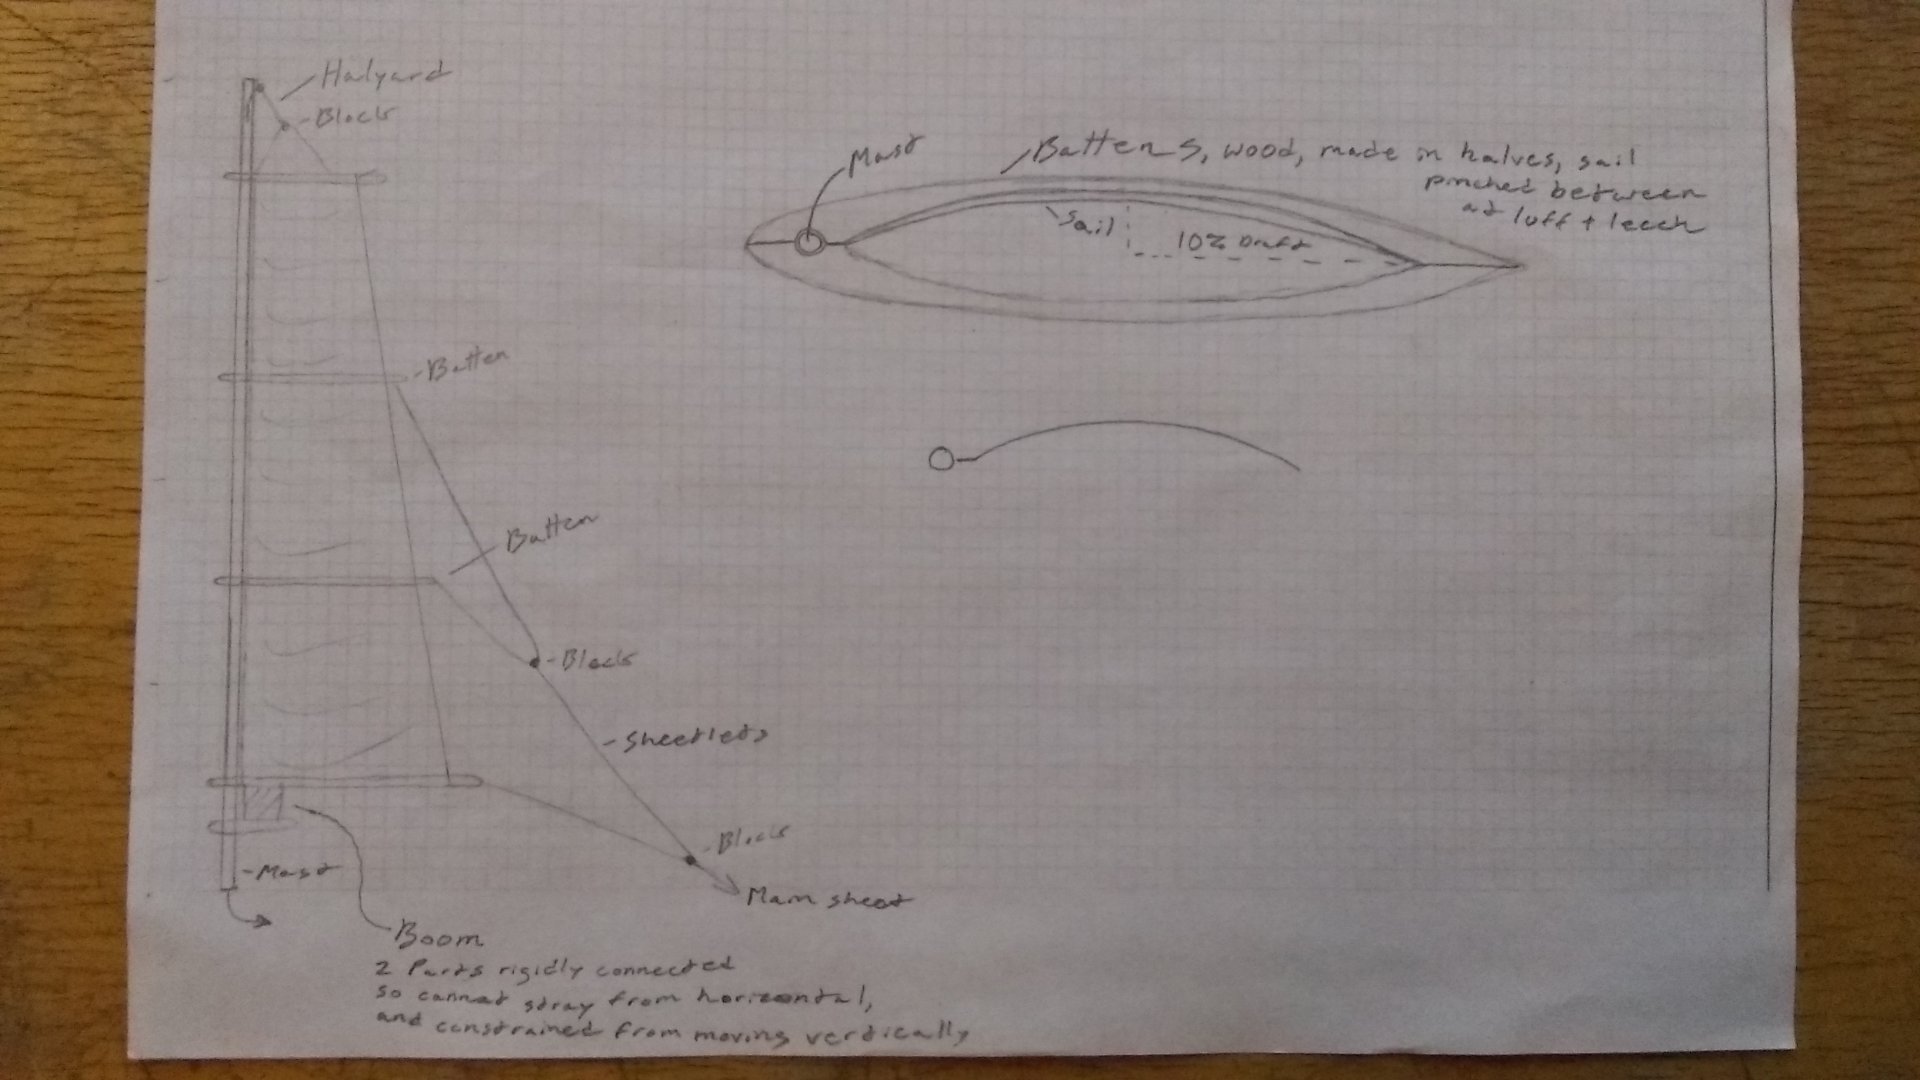 Halyard
-Block
Mast
Battens, wood, made in halves, sail
pinched between
at luff + leech
Sail
10% Draft
-Batten
Batten
-Block
-Sheetlets
-Block
-Mast
Main sheet
Boom
2 Parts rigidly connected
so cannot stray from horizontal,
and constrained from moving vertically